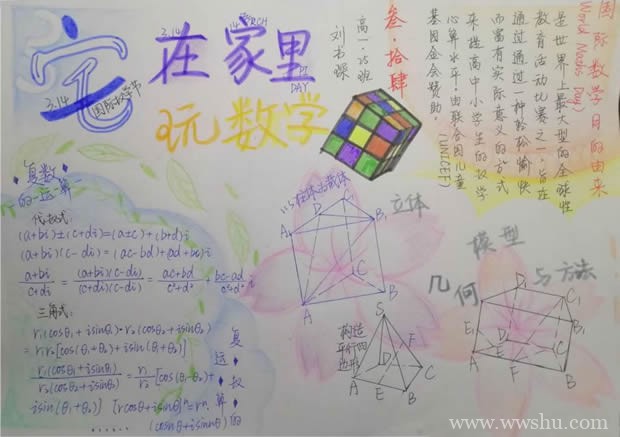 宅
在家里
玩数学
3.14
国际数学节
3.14
DAY
叁·拾肆
高一·25班
国际数学日的由来
(World Maths Day)
是世界上最大型的全球性
教育活动比赛之一,旨在
通过通过一种轻松愉快
而富有实际意义的方式
来提高中小学生的数学
心算水平!由联合国儿童
基金会赞助。(UNICEF)
复数
的运算
代数式:
(a+bi)±(c+di)=(a±c)+(b+d)i
(a+bi)(c-di)=(ac-bd)+(ad+bc)i
a+bi/c+di = (a+bi)(c-di)/(c+di)(c-di) = ac+bd/c²+d² + bc-ad/c²+d² i
三角式:
r₁(cosθ₁+isinθ₁)·r₂(cosθ₂+isinθ₂)
=r₁r₂[cos(θ₁+θ₂)+isin(θ₁+θ₂)]
r₁(cosθ₁+isinθ₁)/r₂(cosθ₂+isinθ₂) = r₁/r₂[cos(θ₁-θ₂)+
isin(θ₁-θ₂)] [r(cosθ+isinθ)]ⁿ=rⁿ·
(cosnθ+isinnθ)
......
复数的运算
以柱体为载体
立体
几何
模型
与方法
A₁ D C₁ B₁
C
A B
构造
平行四
边形
S
F
D
C
A E B
D₁ C₁
E₁ B₁
D C
A E F B
www.wwshu.com